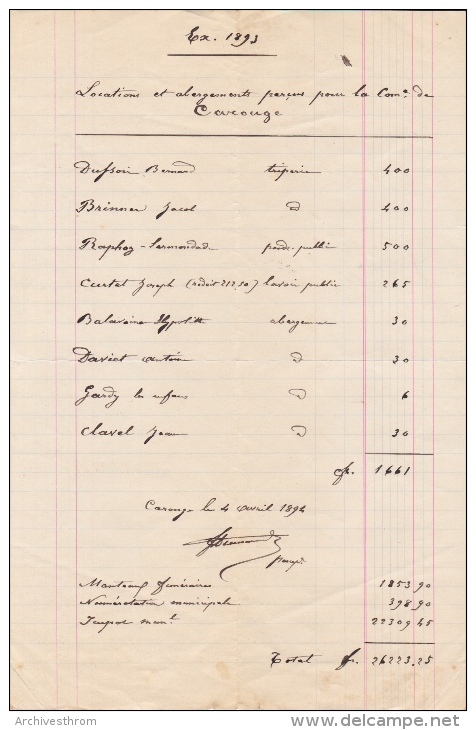 Ex. 1893
Locations et abergements perçus pour la Com.e de
Carouge
Bernard triperie 400
Brinner Jacob d 400
Raphoz - poids public 500
Curtet Joseph (réduit 212.50) lavoir public 265
Hypolitte abergement 30
Daviet Antoine d 30
Gardy les enfans d 6
Clavel Jean d 30
fr. 1661
Carouge le 4 avril 1894
Manteaux funéraires 1853.90
Numérotation municipale 398.90
Impot mun.l 22309.45
Total fr. 26223.25
Archivesthrom
delcampe.net